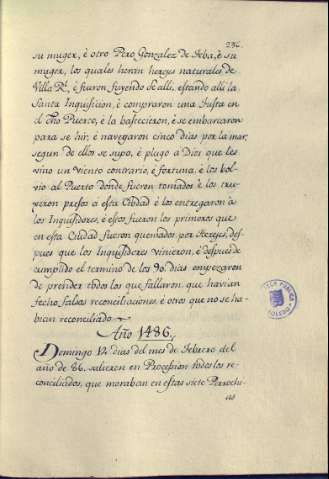 236.
su muger, è otro Pero Gonzalez de Teba, è su
muger, los quales heran hereges naturales de
Villa Rl. è fueron fuyendo de alli, estando alli la
Santa Inquisicion, è compraron una Fusta en
el dho Puerto, è la bastecieron, è se embarcaron
para se hir, è navegaron cinco dias por la mar,
segun de ellos se supo, è plugo a Dios que les
vino un viento contrario, è fortuna, è los bol-
vio al Puerto donde fueron tomados è los tru-
xeron presos a esta Ciudad è los entregaron à
los Inquisidores, è estos fueron los primeros que
en esta Ciudad fueron quemados, por Hereges, des-
pues que los Inquisidores vinieron, è despues de
cumplido el termino de los 90. dias empezaron
de prender todos los que fallaron que havian
fecho falsas reconciliaciones è otros que no se ha-
bian reconciliado
Año 1486.
Domingo 12 dias del mes de Febrero del
año de 86. salieron en Procession todos los re-
conciliados, que moraban en estas siete Parrochi-
as
TOLEDO